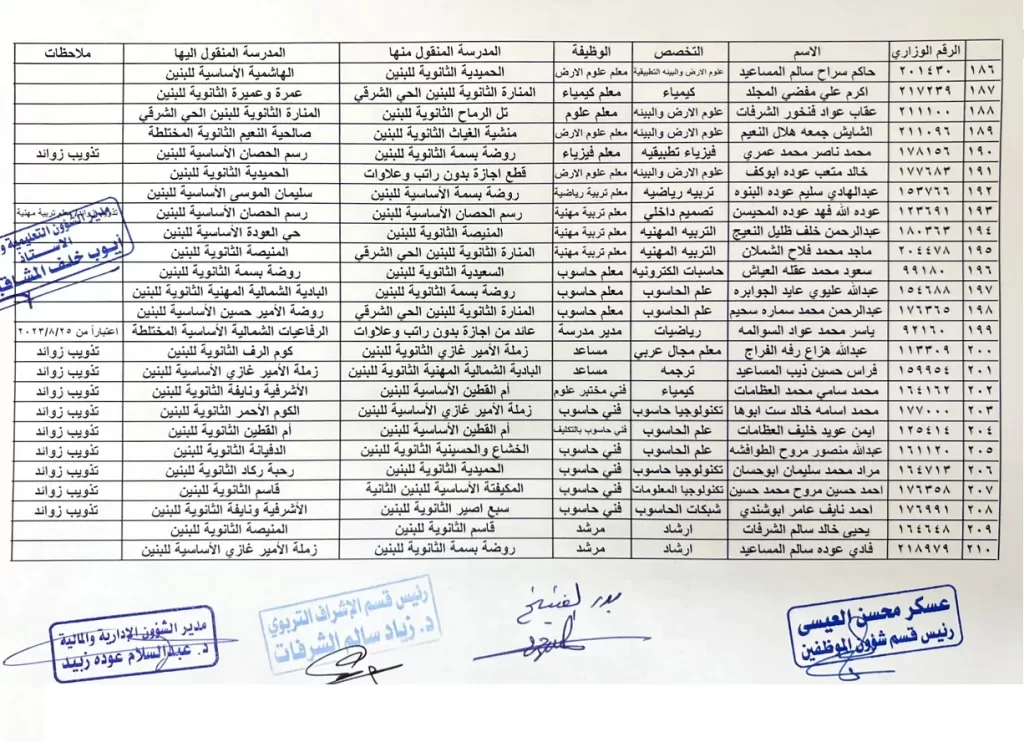 الرقم الوزاري الاسم التخصص الوظيفة المدرسة المنقول منها المدرسة المنقول اليها ملاحظات
١٨٦ ٢٠١٤٣٠ حاكم سراح سالم المساعيد علوم الارض والبيئه التطبيقية معلم علوم الارض الحميدية الثانوية للبنين الهاشمية الأساسية للبنين
١٨٧ ٢١٧٢٣٩ اكرم علي مفضي المجلد كيمياء معلم كيمياء المنارة الثانوية للبنين الحي الشرقي عمرة وعميرة الثانوية للبنين
١٨٨ ٢١١١٠٠ عقاب عواد فنخور الشرفات علوم الارض والبيئه معلم علوم تل الرماح الثانوية للبنين المنارة الثانوية للبنين الحي الشرقي
١٨٩ ٢١١٠٩٦ الشايش جمعه هلال النعيم علوم الارض والبيئه معلم علوم الارض منشية الغياث الثانوية للبنين صالحية النعيم الثانوية المختلطة
١٩٠ ١٧٨١٥٦ محمد ناصر محمد عمري فيزياء تطبيقيه معلم فيزياء روضة بسمة الثانوية للبنين رسم الحصان الأساسية للبنين تذويب زوائد
١٩١ ١٧٧٦٨٣ خالد متعب عوده ابوكف علوم الارض والبيئه معلم علوم الارض قطع اجازة بدون راتب وعلاوات الحميدية الثانوية للبنين
١٩٢ ١٥٣٧٦٦ عبدالهادي سليم عوده البنوه تربيه رياضيه معلم تربية رياضية روضة بسمة الأساسية للبنين سليمان الموسى الأساسية للبنين
١٩٣ ١٢٣٦٩١ عوده الله فهد عوده المحيسن تصميم داخلي معلم تربية مهنية رسم الحصان الأساسية للبنين رسم الحصان الأساسية للبنين معلم تربية مهنية
١٩٤ ١٨٠٣٦٣ عبدالرحمن خلف ظليل النعيج التربيه المهنيه معلم تربية مهنية المنيصة الثانوية للبنين حي العودة الأساسية للبنين
١٩٥ ٢٠٤٤٧٨ ماجد محمد فلاح الشملان التربيه المهنيه معلم تربية مهنية المنارة الثانوية للبنين الحي الشرقي المنيصة الثانوية للبنين
١٩٦ ٩٩١٨٠ سعود محمد عقله العياش حاسبات الكترونيه معلم حاسوب السعيدية الثانوية للبنين روضة بسمة الثانوية للبنين
١٩٧ ١٥٤٦٨٨ عبدالله عليوي عايد الجوابره علم الحاسوب معلم حاسوب روضة الأمير حسين الأساسية للبنين البادية الشمالية المهنية الثانوية للبنين
١٩٨ ١٧٦٣٦٥ عبدالرحمن محمد سماره سحيم علم الحاسوب معلم حاسوب المنارة الثانوية للبنين الحي الشرقي روضة الأمير حسين الأساسية للبنين
١٩٩ ٩٢١٦٠ ياسر محمد عواد السوالمه رياضيات مدير مدرسة عائد من اجازة بدون راتب وعلاوات الرفاعيات الشمالية الأساسية المختلطة اعتباراً من ٢٠٢٣/٨/٢٥
٢٠٠ ١١٣٣٠٩ عبدالله هزاع رفه الفراج معلم مجال عربي مساعد زملة الأمير غازي الثانوية للبنين كوم الرف الثانوية للبنين تذويب زوائد
٢٠١ ١٥٩٩٥٤ فراس حسين ذيب المساعيد ترجمه مساعد البادية الشمالية المهنية الثانوية للبنين زملة الأمير غازي الأساسية للبنين تذويب زوائد
٢٠٢ ١٦٤١٦٢ محمد سامي محمد العظامات كيمياء فني مختبر علوم أم القطين الأساسية للبنين الأشرفية ونايفة الثانوية للبنين تذويب زوائد
٢٠٣ ١٧٧٠٠٠ محمد اسامه خالد ست ابوها تكنولوجيا حاسوب فني حاسوب زملة الأمير غازي الأساسية للبنين الكوم الأحمر الثانوية للبنين تذويب زوائد
٢٠٤ ١٢٥٤١٤ ايمن عويد خليف العظامات علم الحاسوب فني حاسوب بالتكليف أم القطين الأساسية للبنين أم القطين الثانوية للبنين تذويب زوائد
٢٠٥ ١٦١١٢٠ عبدالله منصور مروح الطوافشه علم الحاسوب فني حاسوب الخشاع والحسينية الثانوية للبنين الدفيانة الثانوية للبنين تذويب زوائد
٢٠٦ ١٦٤٧١٣ مراد محمد سليمان ابوحسان تكنولوجيا حاسوب فني حاسوب الحميدية الثانوية للبنين رحبة ركاد الثانوية للبنين تذويب زوائد
٢٠٧ ١٧٦٣٥٨ احمد حسين مروح محمد حسين تكنولوجيا المعلومات فني حاسوب المكيفتة الأساسية للبنين الثانية قاسم الثانوية للبنين تذويب زوائد
٢٠٨ ١٧٦٩٩١ احمد نايف عامر ابوشندي شبكات الحاسوب فني حاسوب سبع اصير الثانوية للبنين الأشرفية ونايفة الثانوية للبنين تذويب زوائد
٢٠٩ ١٦٤٦٤٨ يحيى خالد سالم الشرفات ارشاد مرشد قاسم الثانوية للبنين المنيصة الثانوية للبنين
٢١٠ ٢١٨٩٧٩ فادي عوده سالم المساعيد ارشاد مرشد روضة بسمة الثانوية للبنين زملة الأمير غازي الأساسية للبنين
مدير الشؤون التعليمية
الاستاذ
أيوب خلف
عسكر محسن العيسى
رئيس قسم شؤون الموظفين
رئيس قسم الإشراف التربوي
د. زياد سالم الشرفات
مدير الشؤون الإدارية والمالية
د. عبدالسلام عوده زبيد